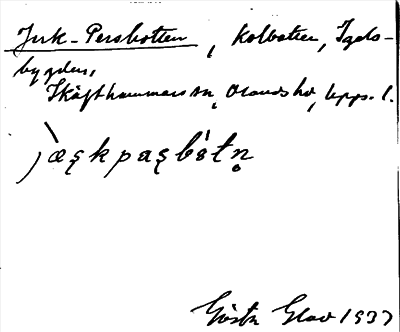 Jerk-Persbotten, Kolbotten, Igels-
bygden,
Skäfthammars sn, Olands hd, Upps. l.
jæskpasbótn̥
Gösta Glav 1937